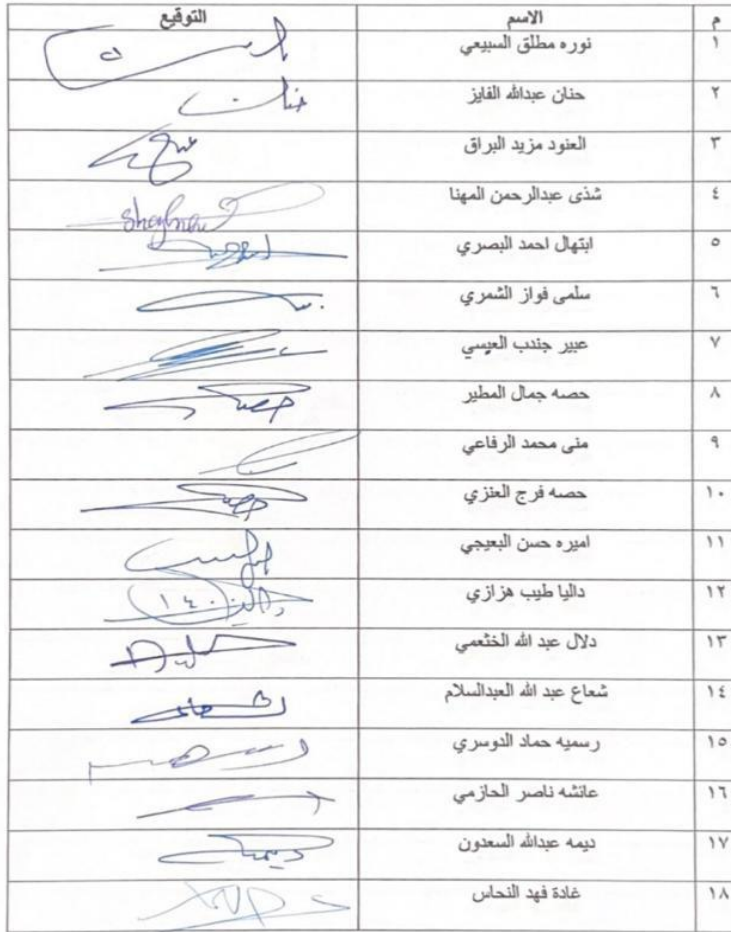 م الاسم التوقيع
١ نوره مطلق السبيعي
٢ حنان عبدالله الفايز حنان
٣ العنود مزيد البراق
٤ شذى عبدالرحمن المهنا
٥ ابتهال احمد البصري
٦ سلمى فواز الشمري
٧ عبير جندب العيسي
٨ حصه جمال المطير حصه
٩ منى محمد الرفاعي
١٠ حصه فرج العنزي حصه
١١ اميره حسن البعيجي
١٢ داليا طيب هزازي داليا ١٤٠
١٣ دلال عبد الله الخثعمي
١٤ شعاع عبد الله العبدالسلام
١٥ رسميه حماد الدوسري
١٦ عائشه ناصر الحازمي
١٧ ديمه عبدالله السعدون ديمه
١٨ غادة فهد النحاس